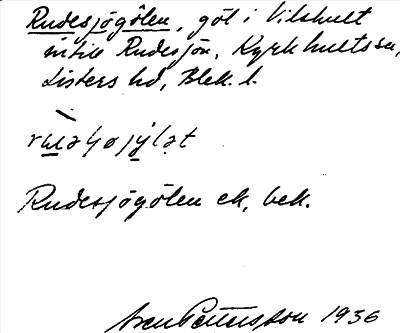 Rudesjögölen, göl i Vilshult
intill Rudesjön, Kyrkhults sn,
Listers hd, Blek. l.
Rudesjögölen ek, bek.
Sven Pettersson 1936